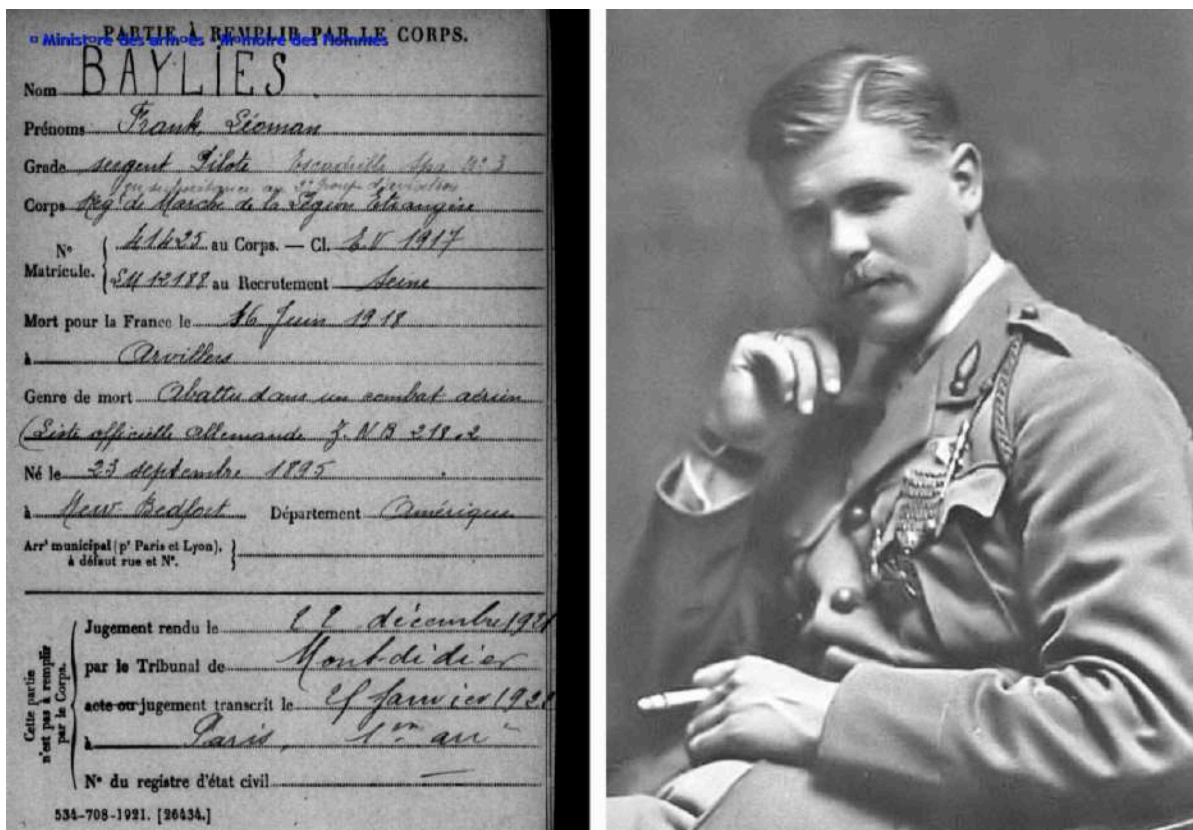 PARTIE À REMPLIR PAR LE CORPS.
¤ Ministère des armées - Mémoire des Hommes
Nom BAYLIES
Prénoms Frank, Léoman
Grade sergent Pilote Escadrille Spa N° 3
en subsistance au 2e groupe d'aviation
Corps Rég. de Marche de la Légion Etrangère
N° Matricule. { 41425 au Corps. — Cl. E V 1917
EM 12188 au Recrutement Seine
Mort pour la France le 16 Juin 1918
à Arvillers
Genre de mort Abattu dans un combat aérien
(Liste officielle allemande J. N B 218.2
Né le 23 septembre 1895
à New Bedfort Département Amérique
Arrt municipal (pr Paris et Lyon), à défaut rue et N°. }
Cette partie n'est pas à remplir par le Corps.
Jugement rendu le 22 décembre 1921
par le Tribunal de Montdidier
acte ou jugement transcrit le janvier 192
à Paris, 1er arrt
N° du registre d'état civil —
534-708-1921. [26434.]